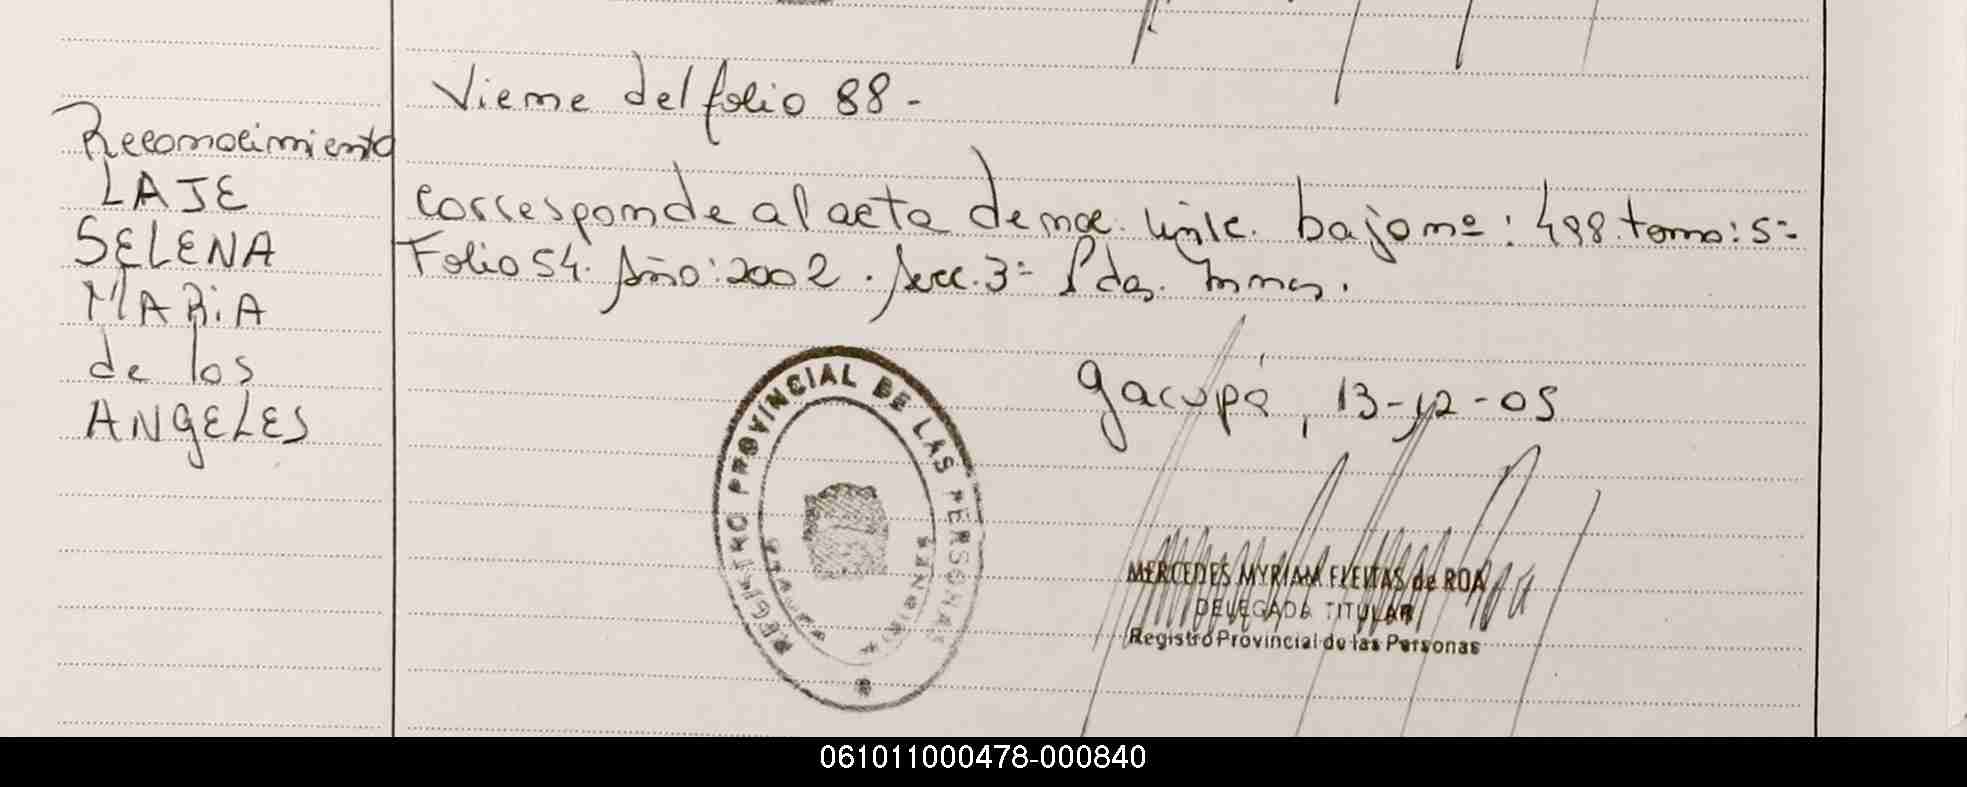 Viene del folio 88 -
Reconocimiento
LAJE
SELENA
MARiA
de los
ANgELES
corresponde al acta de nac. bajo nº: 498. tomo: 5º
Folio 54. Año: 2002. Secc. 3º Pdas.
garupá, 13-12-05
REGISTRO PROVINCIAL DE LAS PERSONAS
MERCEDES MYRIAM FLEITAS de ROA
DELEGADA TITULAR
Registro Provincial de las Personas
061011000478-000840